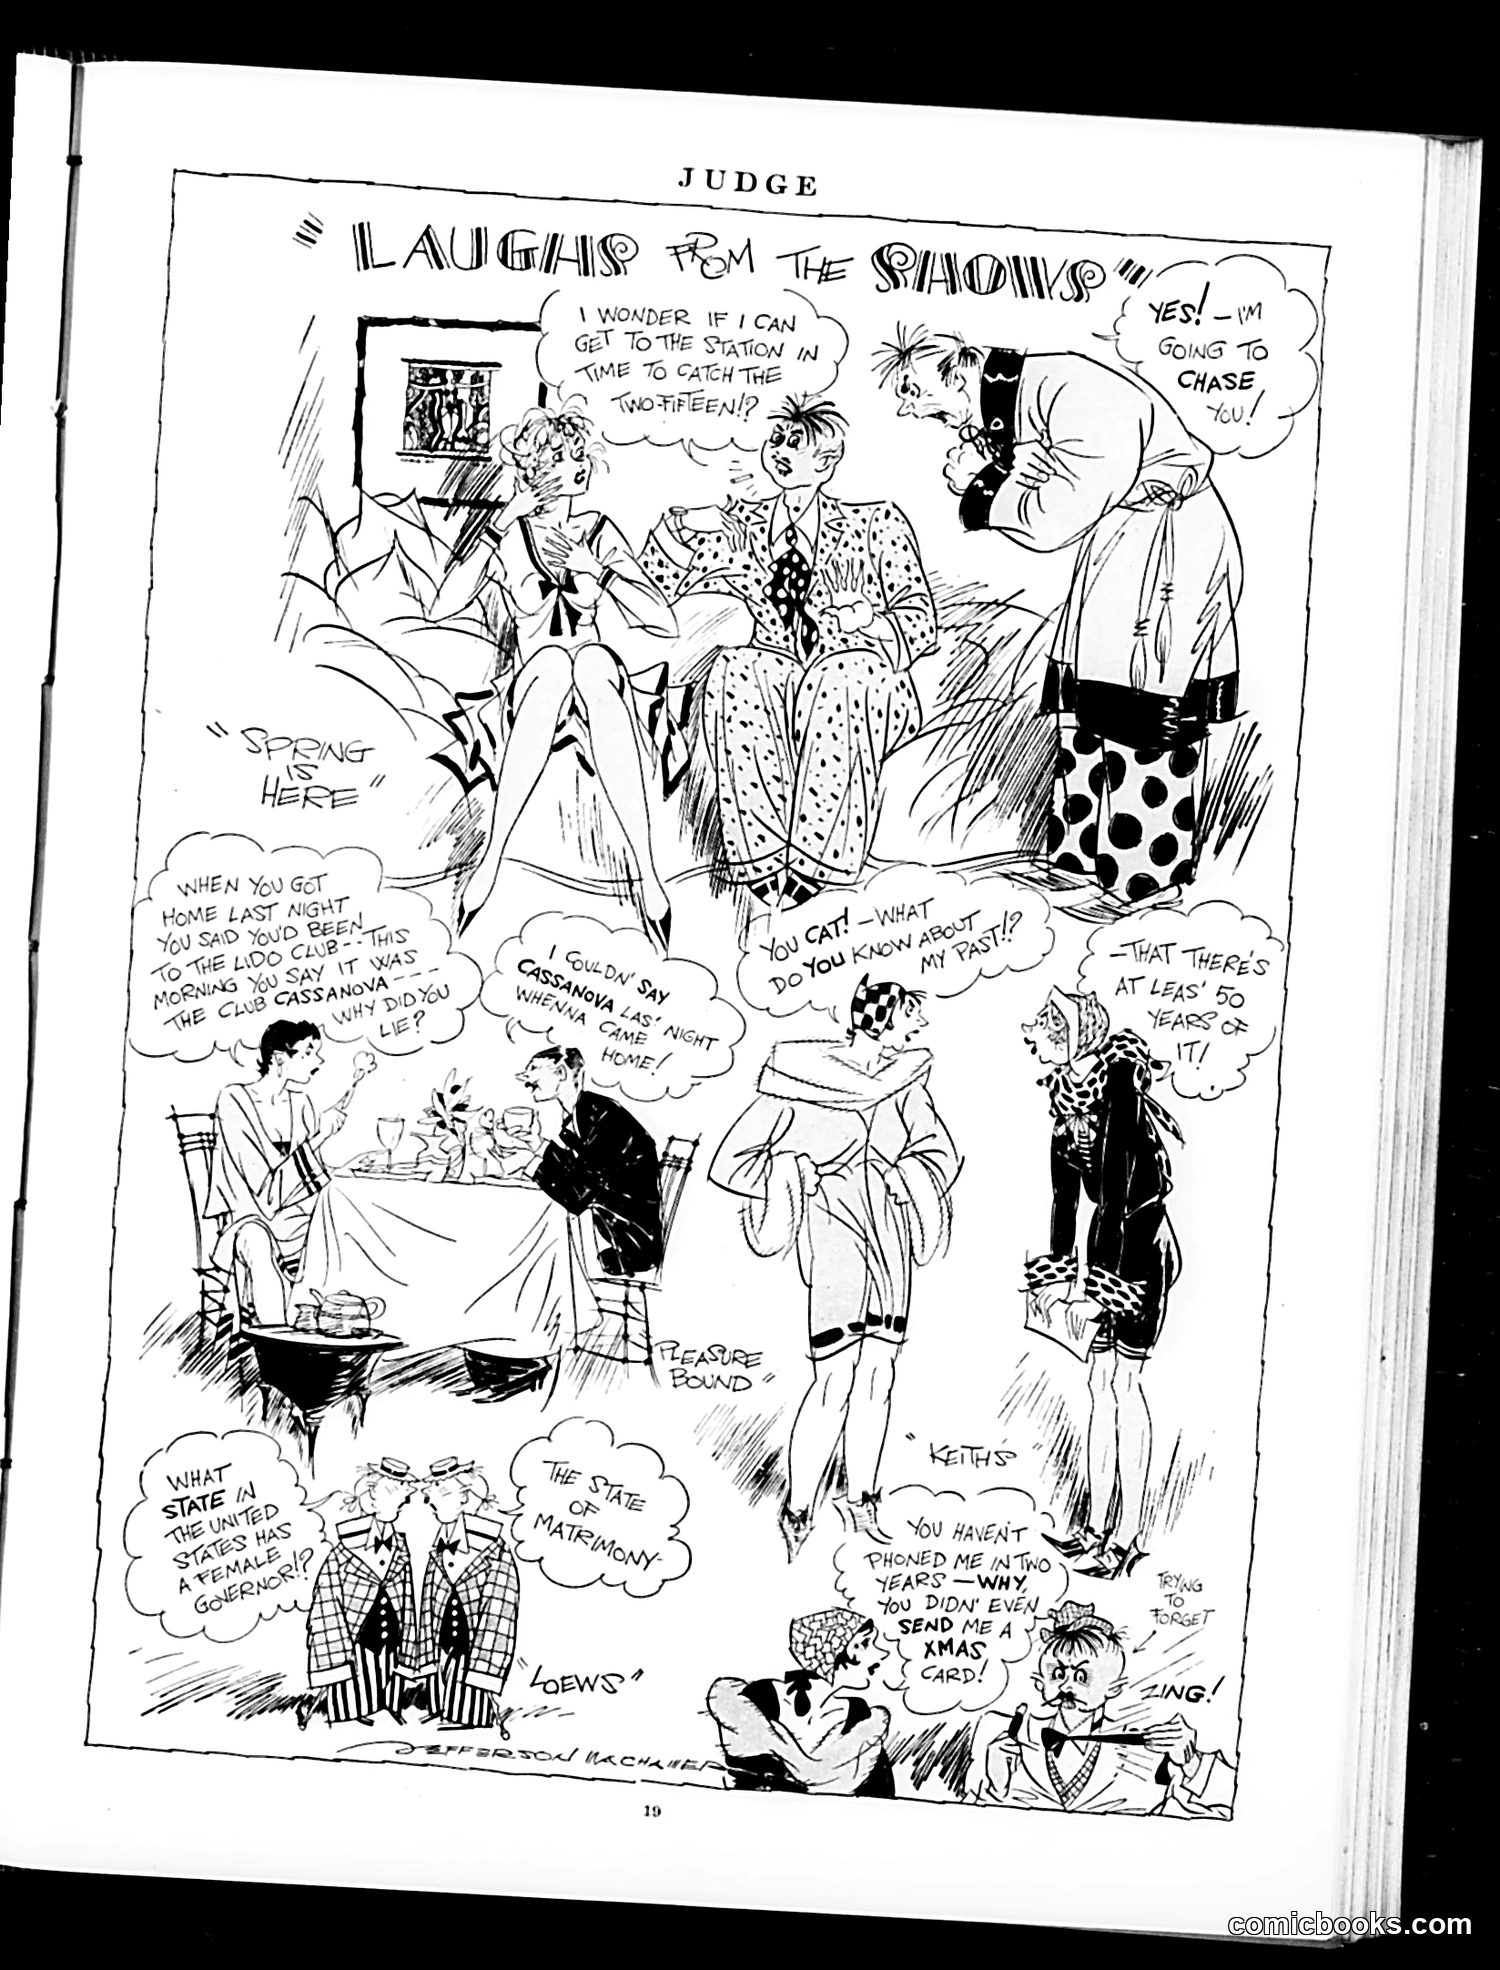 JUDGE
"LAUGHS FROM THE SHOWS"
I WONDER IF I CAN
GET TO THE STATION IN
TIME TO CATCH THE
TWO-FIFTEEN!?
YES! – I'M
GOING TO
CHASE
YOU!
"SPRING
IS
HERE"
WHEN YOU GOT
HOME LAST NIGHT
YOU SAID YOU'D BEEN
TO THE LIDO CLUB -- THIS
MORNING YOU SAY IT WAS
THE CLUB CASSANOVA ---
WHY DID YOU
LIE?
I COULDN' SAY
CASSANOVA LAS' NIGHT
WHENNA CAME
HOME!
PLEASURE
BOUND"
YOU CAT! – WHAT
DO YOU KNOW ABOUT
MY PAST!?
– THAT THERE'S
AT LEAS' 50
YEARS OF
IT!
"KEITH'S"
WHAT
STATE IN
THE UNITED
STATES HAS
A FEMALE
GOVERNOR!?
THE STATE
OF
MATRIMONY-
"LOEWS"
YOU HAVEN'T
PHONED ME IN TWO
YEARS – WHY,
YOU DIDN' EVEN
SEND ME A
XMAS
CARD!
TRYING
TO
FORGET
ZING!
JEFFERSON MACHAMER
19
comicbooks.com